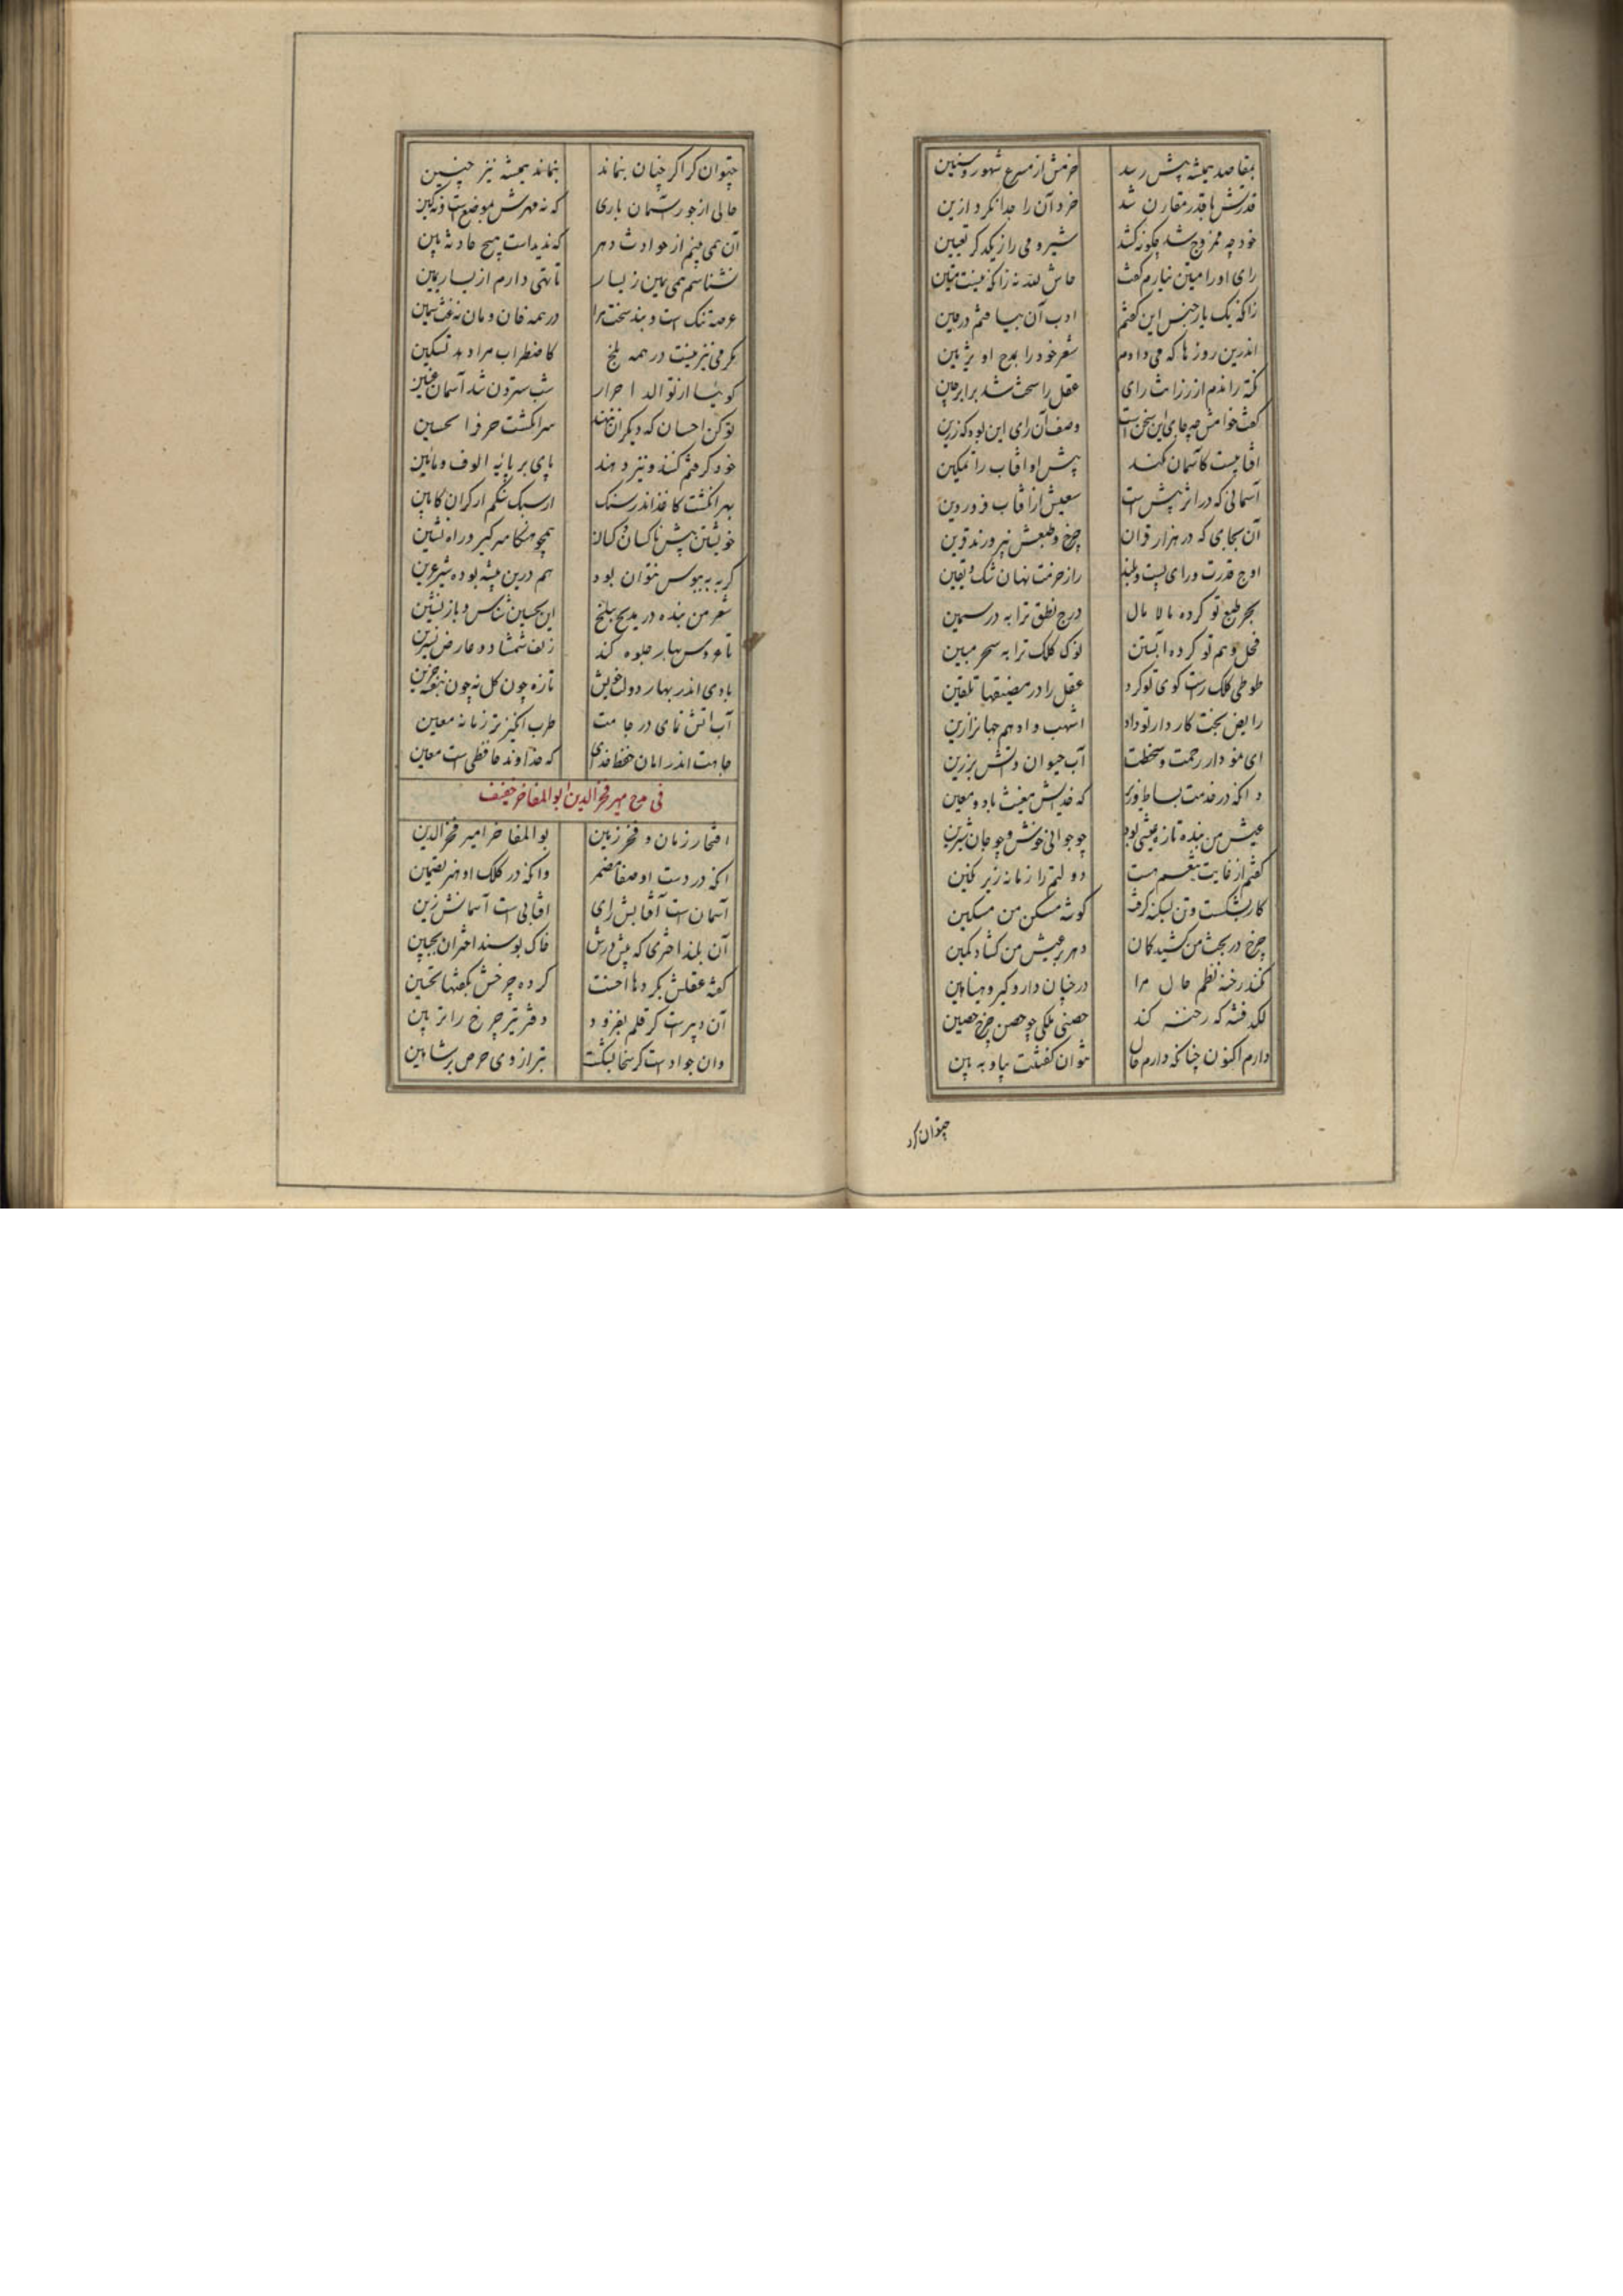 بمقاصد همیشه پیش رسد حزمش از مسرع شهور و سنین
قدرتش با قدر مقارن شد خرد آن را جدا نکرد ازین
خود چو ممزوج شد چگونه کند شیر و می را ز یکدگر تعیین
رای او را متین نیارم گفت حاش لله نه زانکه نیست متین
زانکه یک بار جنس این گفتم ادب آن بیافتم در حین
اندرین روزها که می دادم شعر خود را بمدح او تزیین
نکته راندم از رزانت رای عقل را سخت شد برابر چین
گفت خامش چه جای این سخن است وصف آن رای این بود که زرین
افتابیست کاسمان نکند پیش او افتاب را تمکین
آسمانی که در اثر بیش است سعیش از افتاب فروردین
آن سحابی که در هزار قران چرخ و طبعش نپرورند قرین
اوج قدرت ورای پست و بلند راز حزمت نهان شک و یقین
بحر طبع تو کرده مالامال درج نطق ترا به در سمین
فحل وهم تو کرده آبستن نوک کلک ترا به سحر مبین
طوطی کلک راست کوی تو کرد عقل را در مضیقها تلقین
رایض بخت کاردار تو داد اشهب و ادهم جهانرا زین
ای نمودار رحمت و سخطت آب حیوان و آتش برزین
وانکه در خدمت بساط وزیر که خدایش مغیث باد و معین
عیش من بنده تازه عیشی بود چو جوانی خوش و چو جان شیرین
گفتم از غایت تنعم هست دولتم را زمانه زیر نکین
کار بشکست و تن بکینه گرفت گوشه مسکن من مسکین
چرخ در بخت من کشید کمان دهر بر عیش من گشاد کمین
نکند رخنه نظم حال مرا در چنان دار و گیر و هیناهین
لکد فتنه که رخنه کند حصنی ملکی چو حصن چرخ حصین
دارم اکنون چنانکه دارم حال نتوان گفتنت بیا و ببین
چتوان کرد
چتوان کرد اکر چنان بنماند بنماند همیشه نیز چنین
حالی از جور آسمان باری که نه مهرش بموضع است و نه کین
آن همی بینم از حوادث دهر که ندیداست هیچ حادثه بین
نشناسم همی یمین ز یسار تا تهی دارم از یسار یمین
عرصه تنگ است و بند سخت مرا در همه خان و مان نه غث نه سمین
بکرمی نیز نیست در همه بلخ کاضطراب مرا دهد تسکین
گوئیا از توالد احرار شب سترون شد آسمان عنین
تو کن احسان که دیگران ننهند سر انگشت حرفرا تحسین
خود گرفتم کنند و نیز دهند پای بر پایه الوف و مائین
بهر انگشت کاغذ اندر سنگ از سبک سنگم از گران کابین
خویشتن پیش ناکسان و کسان همچو هنگامه گیر و راه نشین
گربه بیوس نتوان بود هم درین بیشه بوده شیر عرین
شعر من بنده در مدیح ببلخ این بحسین شناس و باز نشین
تا عروس بهار جلوه کند زلف شمشاد و عارض نسرین
بادی اندر بهار دولت خویش تازه چون گل نه چون بنفشه حزین
آب آتش نمای در جامت طرب انگیز تر ز ماء معین
جاهت اندر امان حفظ خدای که خداوند حافظی است معین
فی مدح میر فخر الدین ابو المفاخر خفیف
افتخار زمان و فخر زمین بوالمفاخر امیر فخر الدین
انکه در دست او سخا مضمر وانکه در کلک او هنر تضمین
آسمان است آفتابش رای افتابی است آسمانش زین
آن بلند اختری که پیش درش خاک بوسند اختران بجبین
گفته عقلش بکردها احسنت کرده چرخش بگفتها تحسین
آن دبیرست کز قلم بفزود دفتر تیر چرخ را تزیین
وان جواد است کز سخا بگسست ترازوی حرص بر شاهین